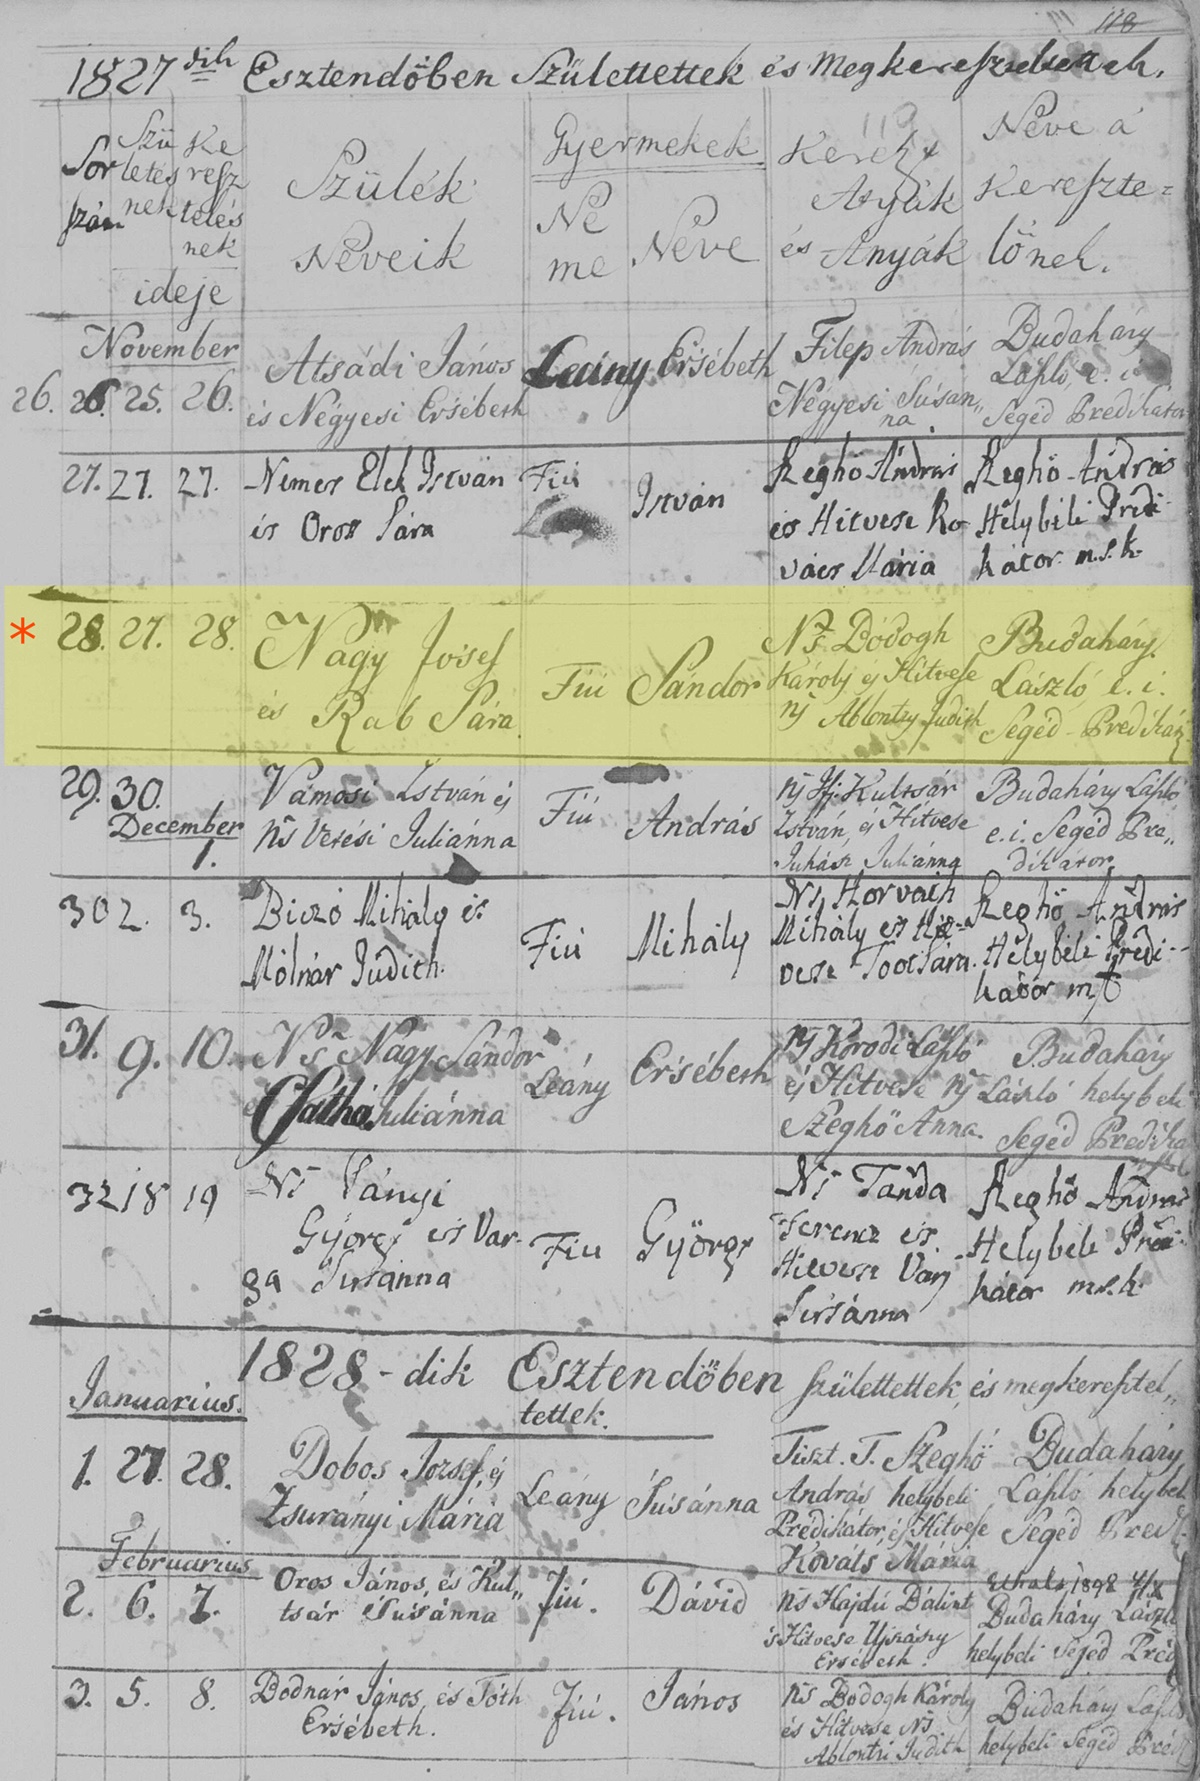 118
1827 dik Esztendőben Születtettek és Megkereszteltettek.
Sor szám
Születésnek Keresztelésnek ideje
Szülék Neveik
Gyermekek
Neme Neve
Kereszt Atyák és Anyák
Neve á Keresztelőnek.
November
26. 26. 25. 26.
Atsádi János
és Négyesi Ersébeth
Leány Ersébeth
Filep András
Négyesi Súsan„
na.
Budaházy
László, e. i.
Segéd Predikátor
27. 27. 27.
Nemes Elek István
és Oros Sára
Fiú
István
Szeghő András
és Hitvese Ko
vács Mária
Szeghő András
Helybéli Prédi
kátor m.s.k.
* 28. 27. 28.
Nagy Josef
és Rab Sára
Fiú Sándor
Ns Bódogh
Károly és Hitvese
ns Ablontzy Judith
Budaházy
László e. i.
Segéd-Predikát
29. 30.
December
1.
Vámosi István és
Ns Verési Juliánna
Fiú András
ns Ifj. Kultsár
István, és Hitvese
Juhász Juliánna
Budaházy László
e. i. Segéd Pre„
dikátor
30 2. 3.
Biczó Mihály és
Mólnár Judith.
Fiú Mihály
Ns Horváth
Mihály és Hit-
vese Toot Sára.
Szeghő András
Helybéli Prédi-
kátor
31. 9. 10.
Ns Nagy Sándor
Juliánna
Leány Ersébeth
ns Kórodi László
és Hitvese ns
Szeghő Anna.
Budaházy
László helybeli
Segéd Predika
32 18 19
Ns Ványi
György és Var-
ga Susánna
Fiu György
Ns Tanda
Ferencz és
Hitvese
Susánna
Szeghő András
Helybéli Prédi
kátor m.s.k.
1828-dik Esztendőben születtettek, és megkeresztel„
tettek.
Januarius.
1. 27. 28.
Dobos Jozsef, és
Zsurányi Mária
Leány Susánna
Tiszt. T. Szeghő
András helybeli
Predikátor, és Hitvese
Kováts Mária
Budaházy
László helybeli
Segéd Pred
Februarius
2. 6. 7.
Oros János, és Kul„
tsár Susánna
Fiú. Dávid
ns Hajdú Bálint
és Hitvese
Ersébeth.
1898
Budaházy László
helybeli Segéd Préd
3. 5. 8.
Bodnár János, és Tóth
Ersébeth.
Fiú. János
ns Bodogh Károly
és Hitvese Ns
Ablontzi Judith
Budaházy László
helybeli Segéd Préd